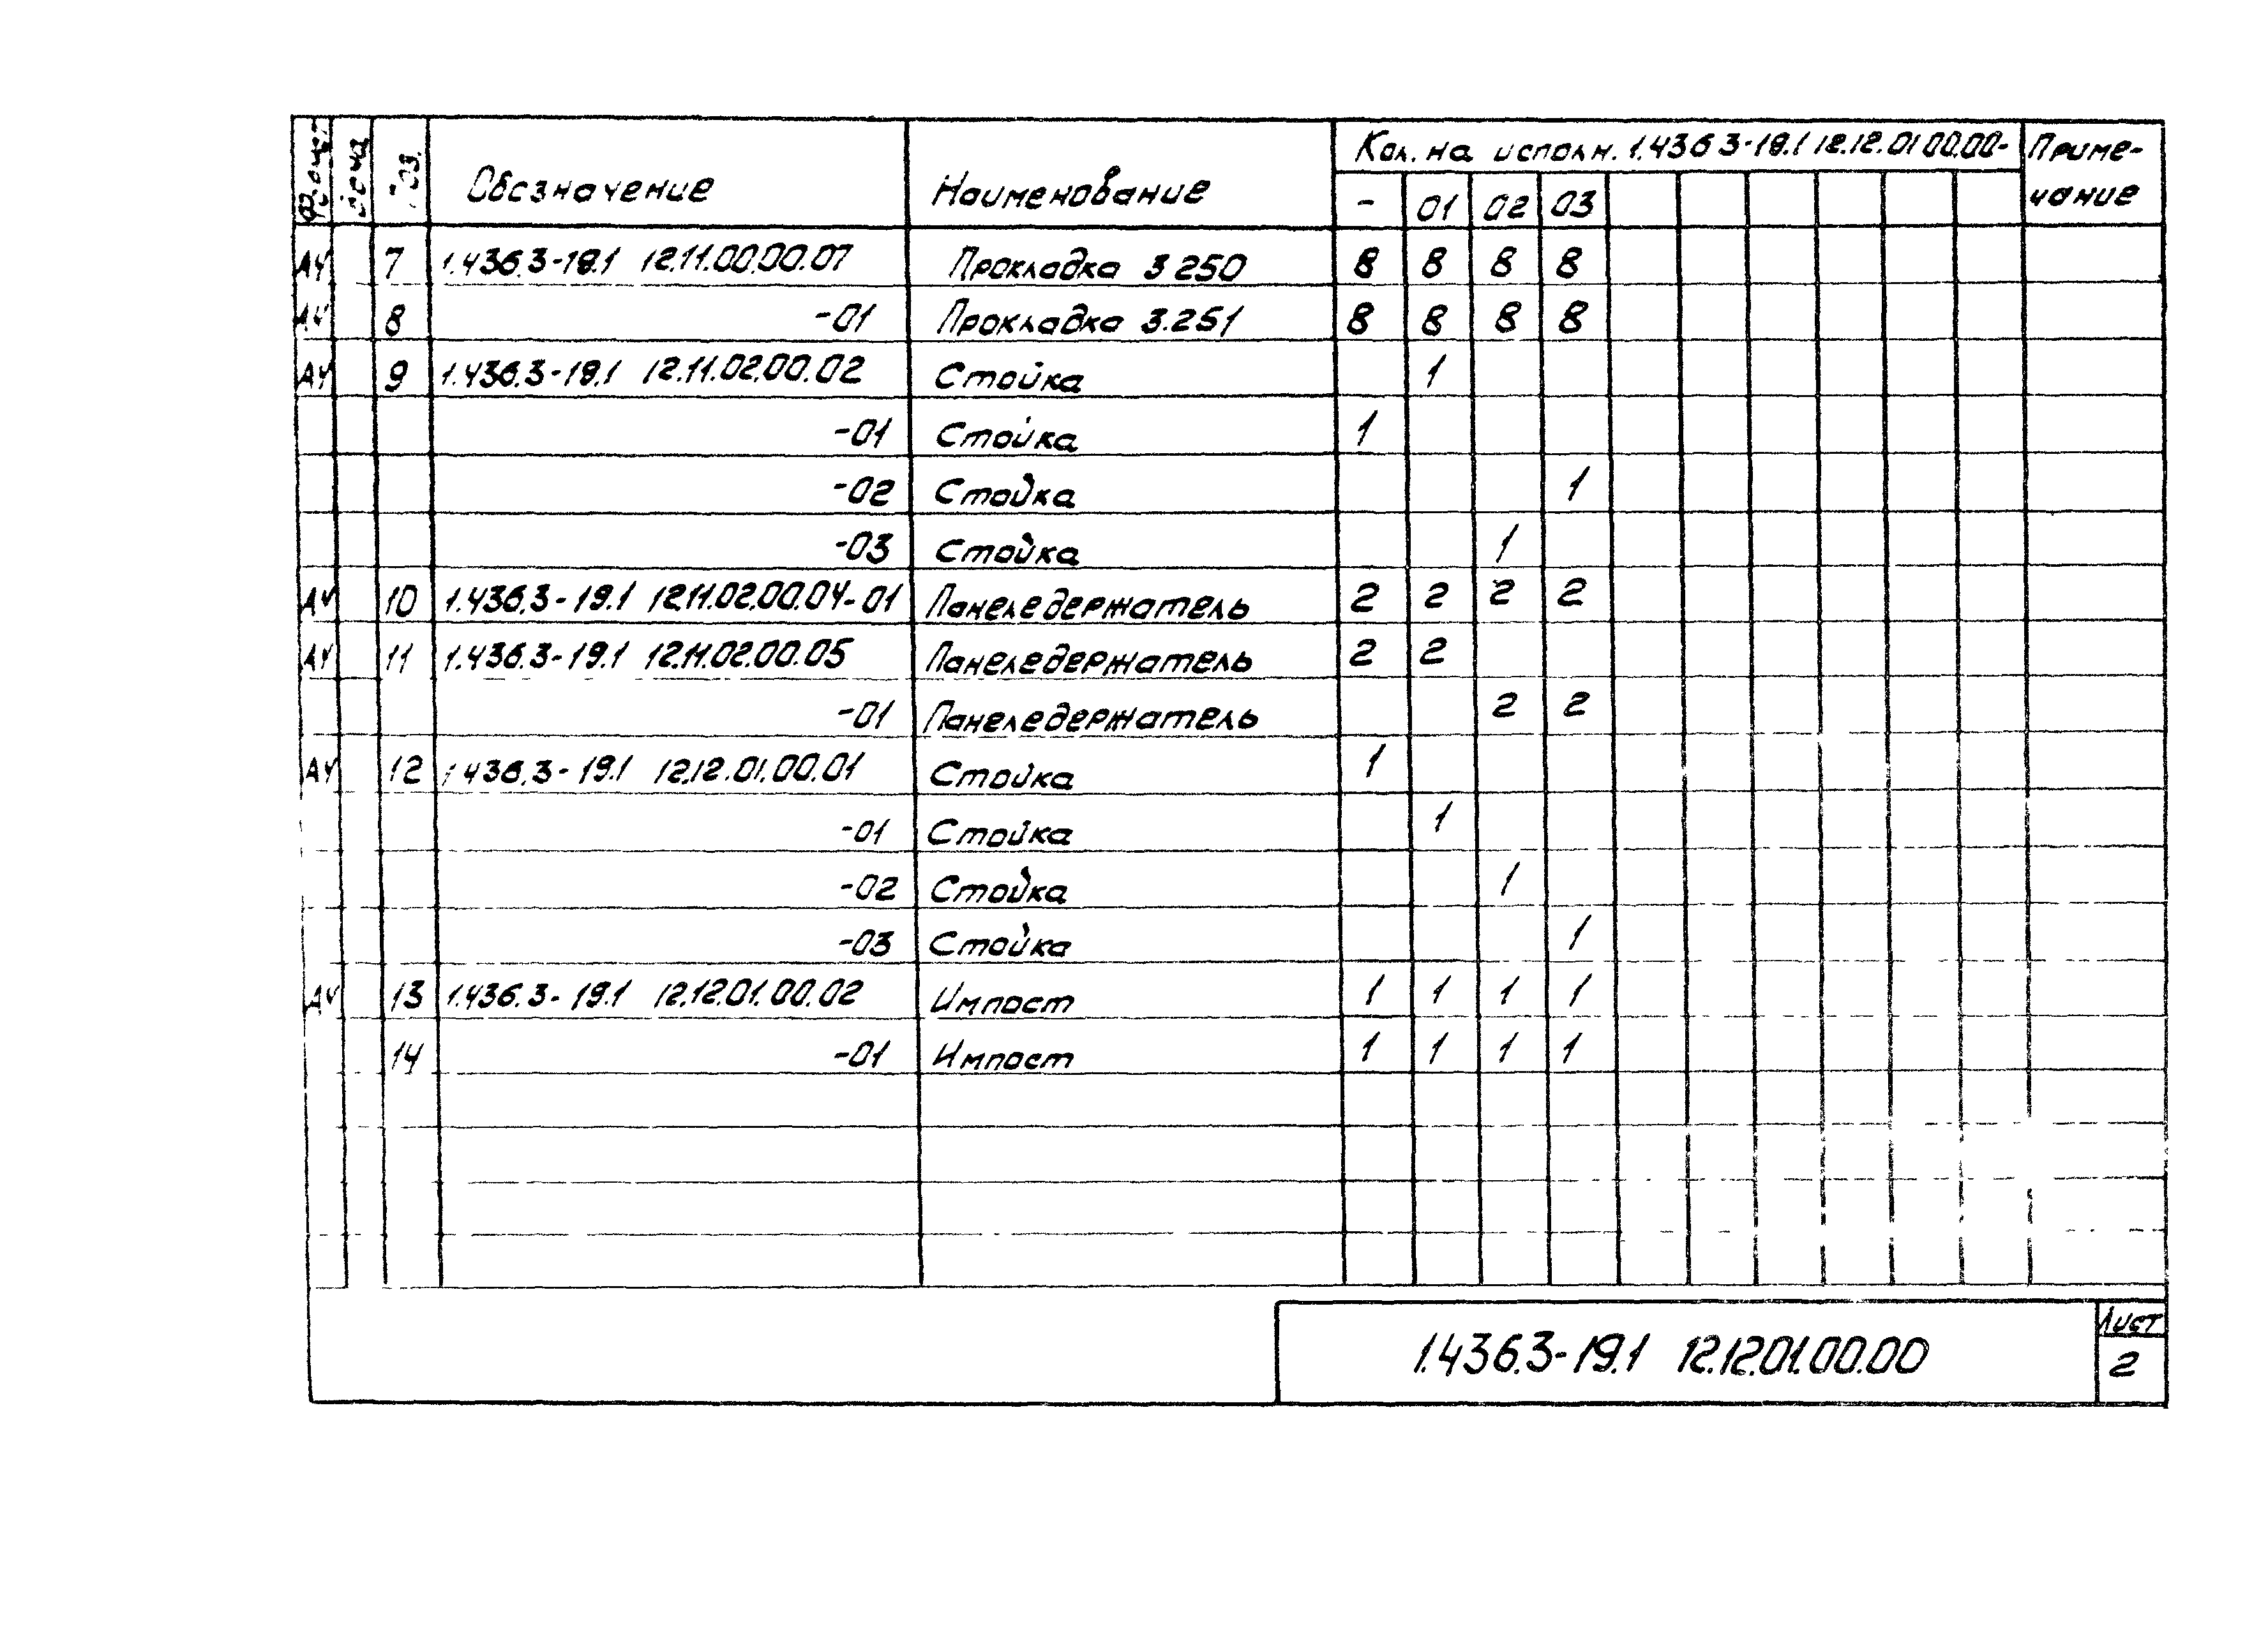 Формат Зона Поз. Обозначение Наименование Кол. на исполн. 1.436 3-19.1 12.12.01 00.00- Приме-
- 01 02 03 чание
А4 7 1.436.3-19.1 12.11.00.00.07 Прокладка 3 250 8 8 8 8
А4 8 -01 Прокладка 3.251 8 8 8 8
А4 9 1.436.3-19.1 12.11.02.00.02 Стойка 1
-01 Стойка 1
-02 Стойка 1
-03 Стойка 1
А4 10 1.436.3-19.1 12.11.02.00.04-01 Панеледержатель 2 2 2 2
А4 11 1.436.3-19.1 12.11.02.00.05 Панеледержатель 2 2
-01 Панеледержатель 2 2
А4 12 1 436.3-19.1 12.12.01.00.01 Стойка 1
-01 Стойка 1
-02 Стойка 1
-03 Стойка 1
А4 13 1.436.3-19.1 12.12.01.00.02 Импост 1 1 1 1
14 -01 Импост 1 1 1 1
1.436.3-19.1 12.12.01.00.00
Лист
2